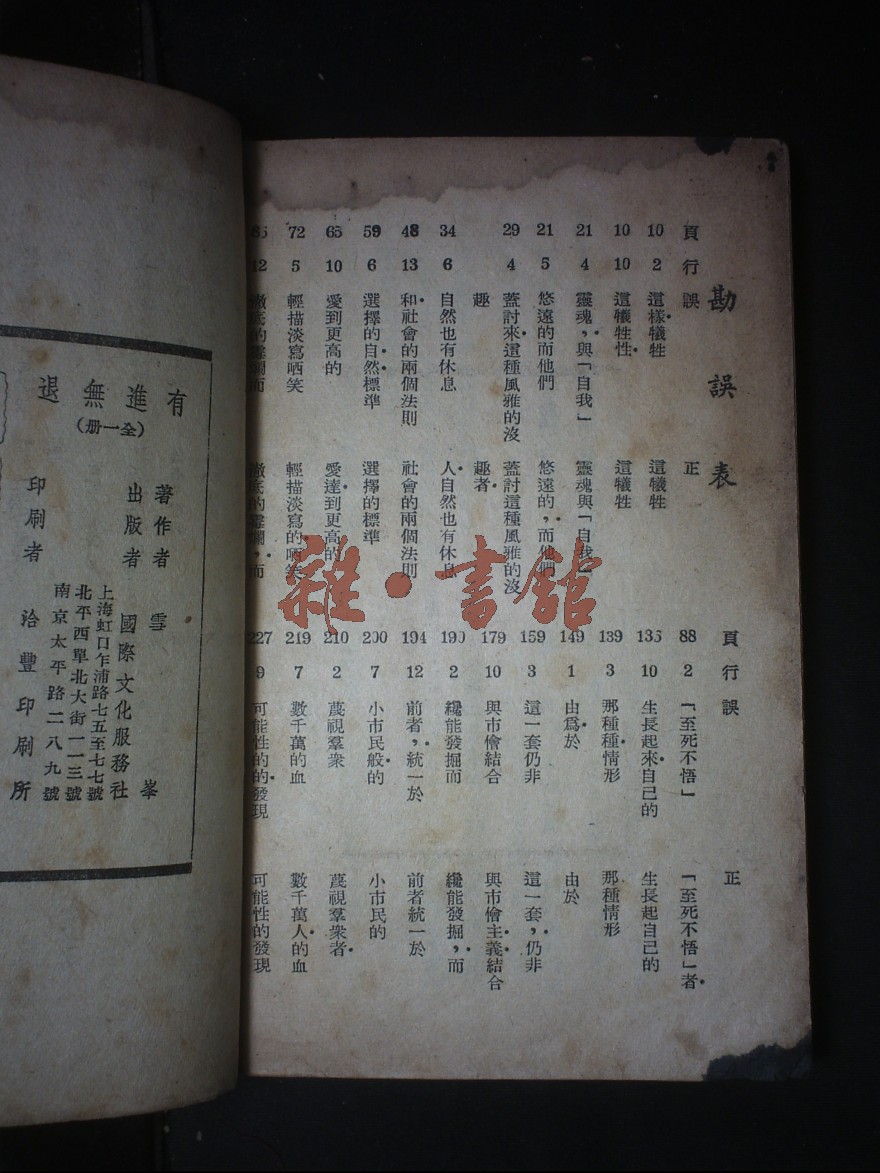 勘誤表
頁 行 誤 正
10 2 這樣犧牲 這犧牲
10 10 這犧牲性 這犧牲
21 4 靈魂，與「自我」 靈魂與「自我」
21 5 悠遠的而他們 悠遠的，而他們
29 4 蓋討來這種風雅的沒趣 蓋討這種風雅的沒趣者
34 6 自然也有休息 人自然也有休息
48 13 和社會的兩個法則 社會的兩個法則
59 6 選擇的自然標準 選擇的標準
65 10 愛到更高的 愛達到更高的
72 5 輕描淡寫哂笑 輕描淡寫的哂笑
85 12
頁 行 誤 正
88 2 「至死不悟」 「至死不悟」者
135 10 生長起來自己的 生長起自己的
139 3 那種種情形 那種情形
149 1 由爲於 由於
159 3 這一套仍非 這一套，仍非
179 10 與市儈結合 與市儈主義結合
190 2 纔能發掘而 纔能發掘，而
194 12 前者，統一於 前者統一於
200 7 小市民般的 小市民的
210 2 蔑視羣衆 蔑視羣衆者
219 7 數千萬的血 數千萬人的血
227 9 可能性的的發現 可能性的發現
有進無退
（全一册）
著作者 雪峯
出版者 國際文化服務社
上海虹口乍浦路七五至七七號
北平西單北大街一一三號
南京太平路二八九號
印刷者 洽豐印刷所
雜·書館